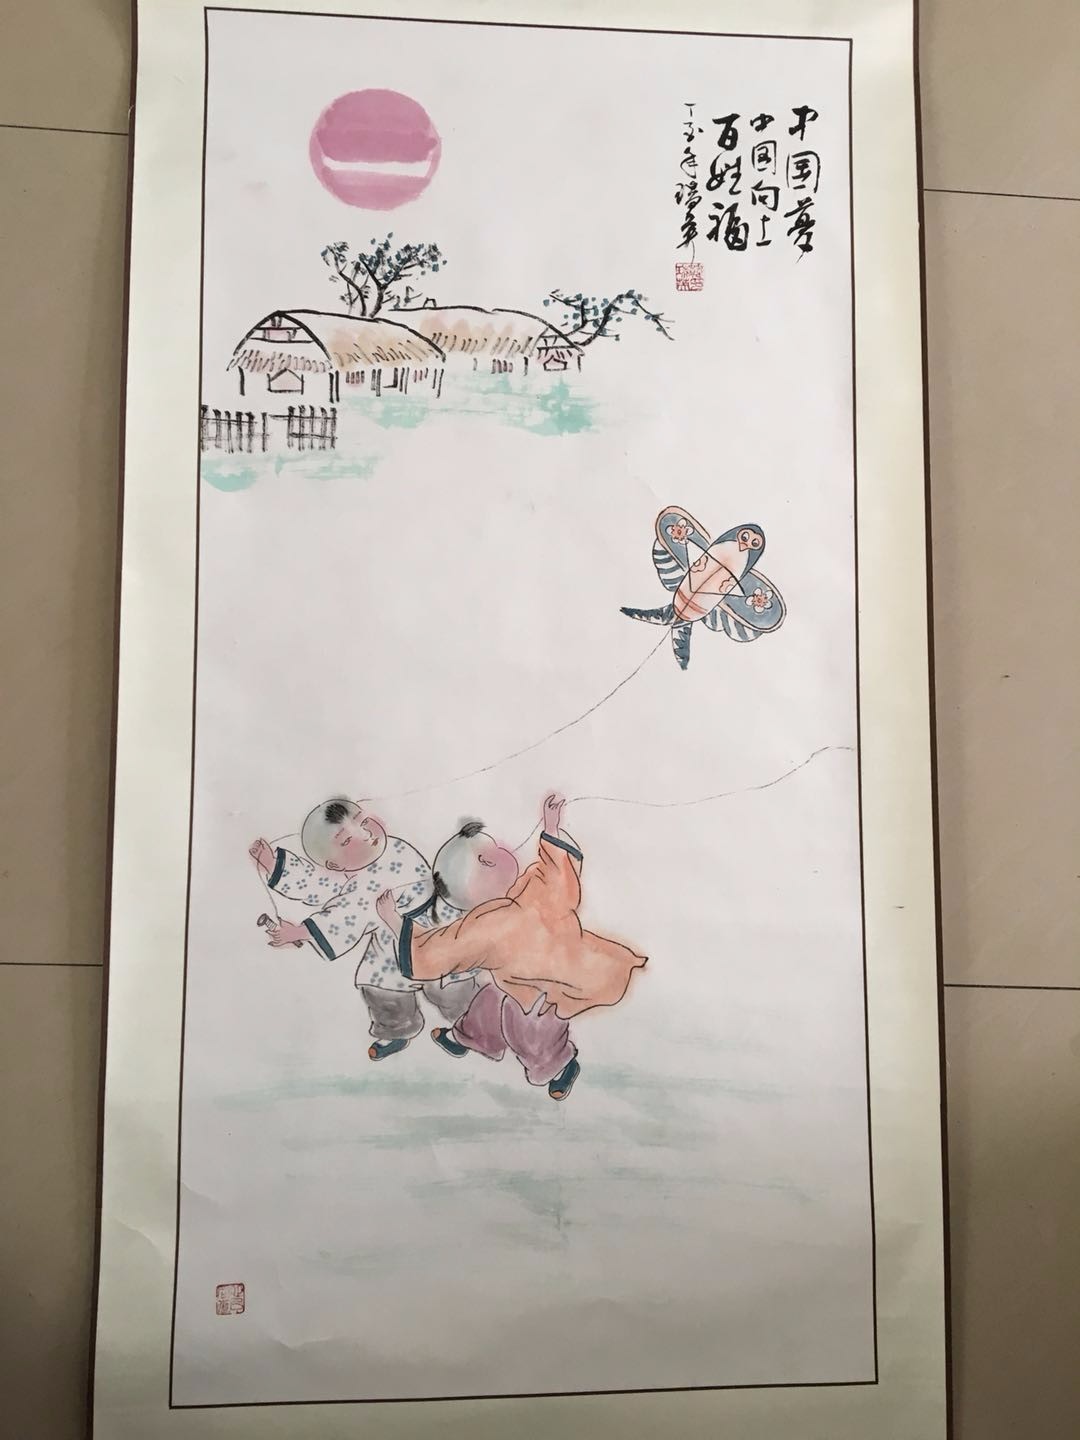 中国梦
中国向上
百姓福
丁酉年瑞英